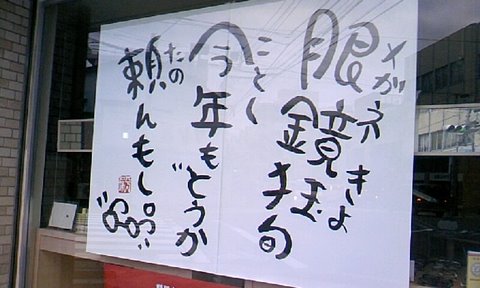 メガネきょ
眼鏡狂句
ことし
今年もどうか
たの
頼んもし